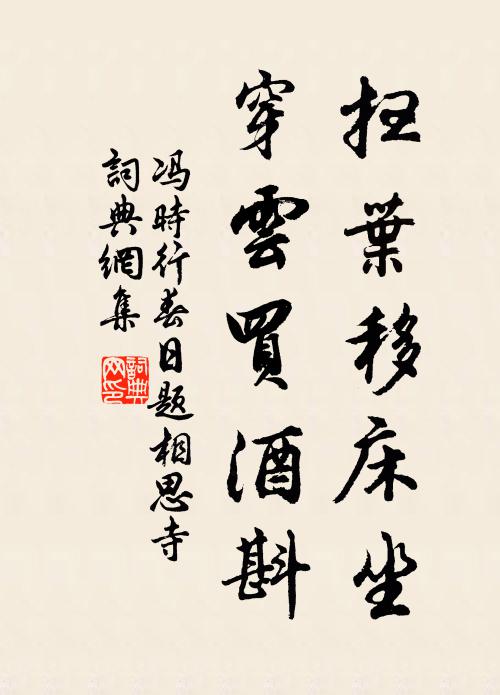 扫葉移床坐
穿雲買酒斟
冯時行春日题相思寺
詞典網集
詞典
网印